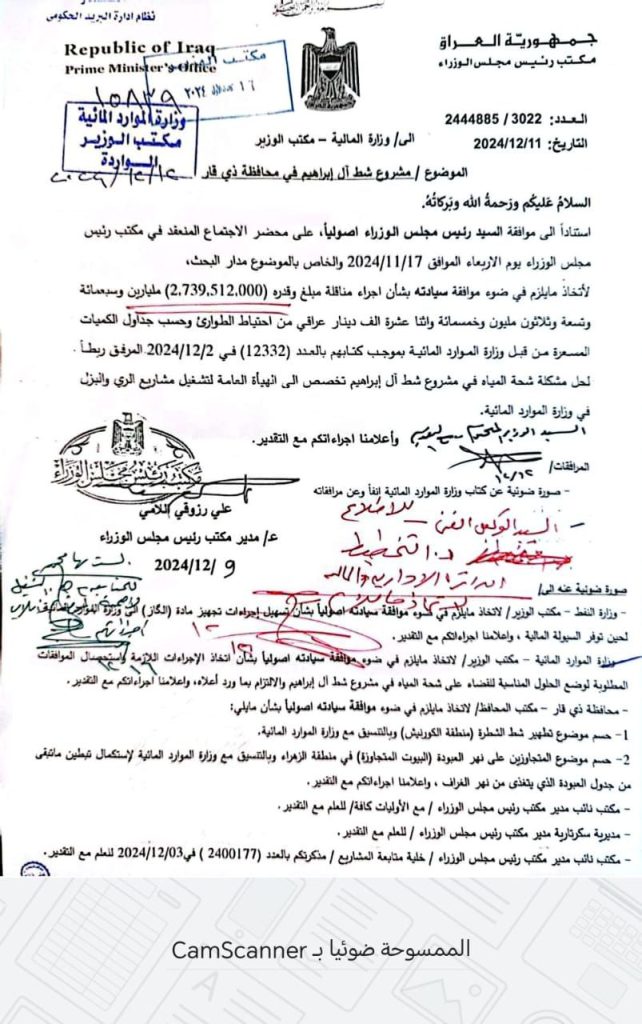 نظام ادارة البريد الحكومي
Republic of Iraq
Prime Minister's Office
جمهورية العراق
مكتب رئيس مجلس الوزراء
مكتب
٢٠٢٤
١٠٨٣٩
وزارة الموارد المائية
مكتب الوزير
الواردة
العدد: 3022 / 2444885
التاريخ: 2024/12/11
الى/ وزارة المالية – مكتب الوزير
الموضوع / مشروع شط آل إبراهيم في محافظة ذي قار
السلامُ عَليكُم ورَحمةُ الله وبَركاتُهُ.
استناداً الى موافقة السيد رئيس مجلس الوزراء اصولياً، على محضر الاجتماع المنعقد في مكتب رئيس
مجلس الوزراء يوم الاربعاء الموافق 2024/11/17 والخاص بالموضوع مدار البحث،
لأتخاذ مايلزم في ضوء موافقة سيادته بشأن اجراء مناقلة مبلغ وقدره (2,739,512,000) مليارين وسبعمائة
وتسعة وثلاثون مليون وخمسمائة واثنا عشرة الف دينار عراقي من احتياط الطوارئ وحسب جداول الكميات
المسعرة من قبل وزارة الموارد المائية بموجب كتابهم بالعدد (12332) في 2024/12/2 المرفق ربطاً
لحل مشكلة شحة المياه في مشروع شط آل إبراهيم تخصص الى الهيأة العامة لتشغيل مشاريع الري والبزل
في وزارة الموارد المائية.
السيد الوزير المحترم
وأعلامنا اجراءاتكم مع التقدير.
المرافقات/
١٢/١٢
– صورة ضوئية عن كتاب وزارة الموارد المائية انفاً وعن مرافقاته
مكتب رئيس مجلس الوزراء
علي رزوقي اللامي
ع/ مدير مكتب رئيس مجلس الوزراء
2024/12/9
السيد الوكيل الفني
للاطلاع
د. التخطيط
الدائرة الادارية والمالية
صورة ضوئية عنه الى/
– وزارة النفط – مكتب الوزير/ لاتخاذ مايلزم في ضوء موافقة سيادته اصولياً بشأن تسهيل إجراءات تجهيز مادة (الكاز) الى وزارة الموارد المائية
لحين توفر السيولة المالية ، واعلامنا اجراءاتكم مع التقدير.
– وزارة الموارد المائية – مكتب الوزير/ لاتخاذ مايلزم في ضوء موافقة سيادته اصولياً بشأن أتخاذ الإجراءات اللازمة واستحصال الموافقات
المطلوبة لوضع الحلول المناسبة للقضاء على شحة المياه في مشروع شط آل إبراهيم والالتزام بما ورد أعلاه، واعلامنا اجراءاتكم مع التقدير.
– محافظة ذي قار – مكتب المحافظ/ لاتخاذ مايلزم في ضوء موافقة سيادته اصولياً بشأن مايلي:
1- حسم موضوع تطهير شط الشطرة (منطقة الكورنيش) وبالتنسيق مع وزارة الموارد المائية.
2- حسم موضوع المتجاوزين على نهر العبودة (البيوت المتجاوزة) في منطقة الزهراء وبالتنسيق مع وزارة الموارد المائية لإستكمال تبطين ماتبقى
من جدول العبودة الذي يتغذى من نهر الغراف ، واعلامنا اجراءاتكم مع التقدير.
– مكتب نائب مدير مكتب رئيس مجلس الوزراء / مع الأوليات كافة/ للعلم مع التقدير.
– مديرية سكرتارية مدير مكتب رئيس مجلس الوزراء / للعلم مع التقدير.
– مكتب نائب مدير مكتب رئيس مجلس الوزراء / خلية متابعة المشاريع / مذكرتكم بالعدد (2400177 ) في2024/12/03 للعلم مع التقدير.
الممسوحة ضوئيا بـ CamScanner